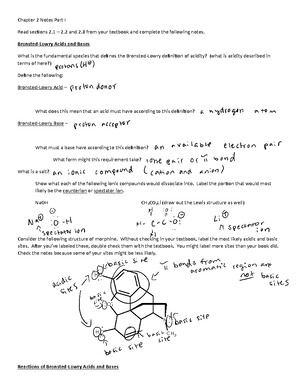 Chapter 2 Notes Part I
Read sections 2.1 – 2.2 and 2.8 from your textbook and complete the following notes.
Bronsted-Lowry Acids and Bases
What is the fundamental species that defines the Bronsted-Lowry definition of acidity? (what is acidity described in
terms of here?) protons (H⊕)
Define the following:
Bronsted-Lowry Acid – proton donor
What does this mean that an acid must have according to this definition? a hydrogen atom
Bronsted-Lowry Base – proton acceptor
What must a base have according to this definition? an available electron pair
What form might this requirement take? lone pair or π bond
What is a salt? an ionic compound (cation and anion)
Show what each of the following ionic compounds would dissociate into. Label the portion that would most
likely be the counterion or spectator ion.
NaOH CH₃CO₂Li (draw out the Lewis structure as well)
Na⊕ ⊖O-H
spectator ion
H-C-C
Li⊕
spectator
ion
Consider the following structure of morphine. Without checking in your textbook, label the most likely acidic and basic
sites. After you've labeled these, double check them with the textbook. You might label more sites than your book did.
Check the notes because some of your sites might be less likely.
basic site
π bonds from
aromatic region are
not basic
sites
acidic
sites
basic
site
basic site
CH₃
basic
site
Reactions of Bronsted-Lowry Acids and Bases